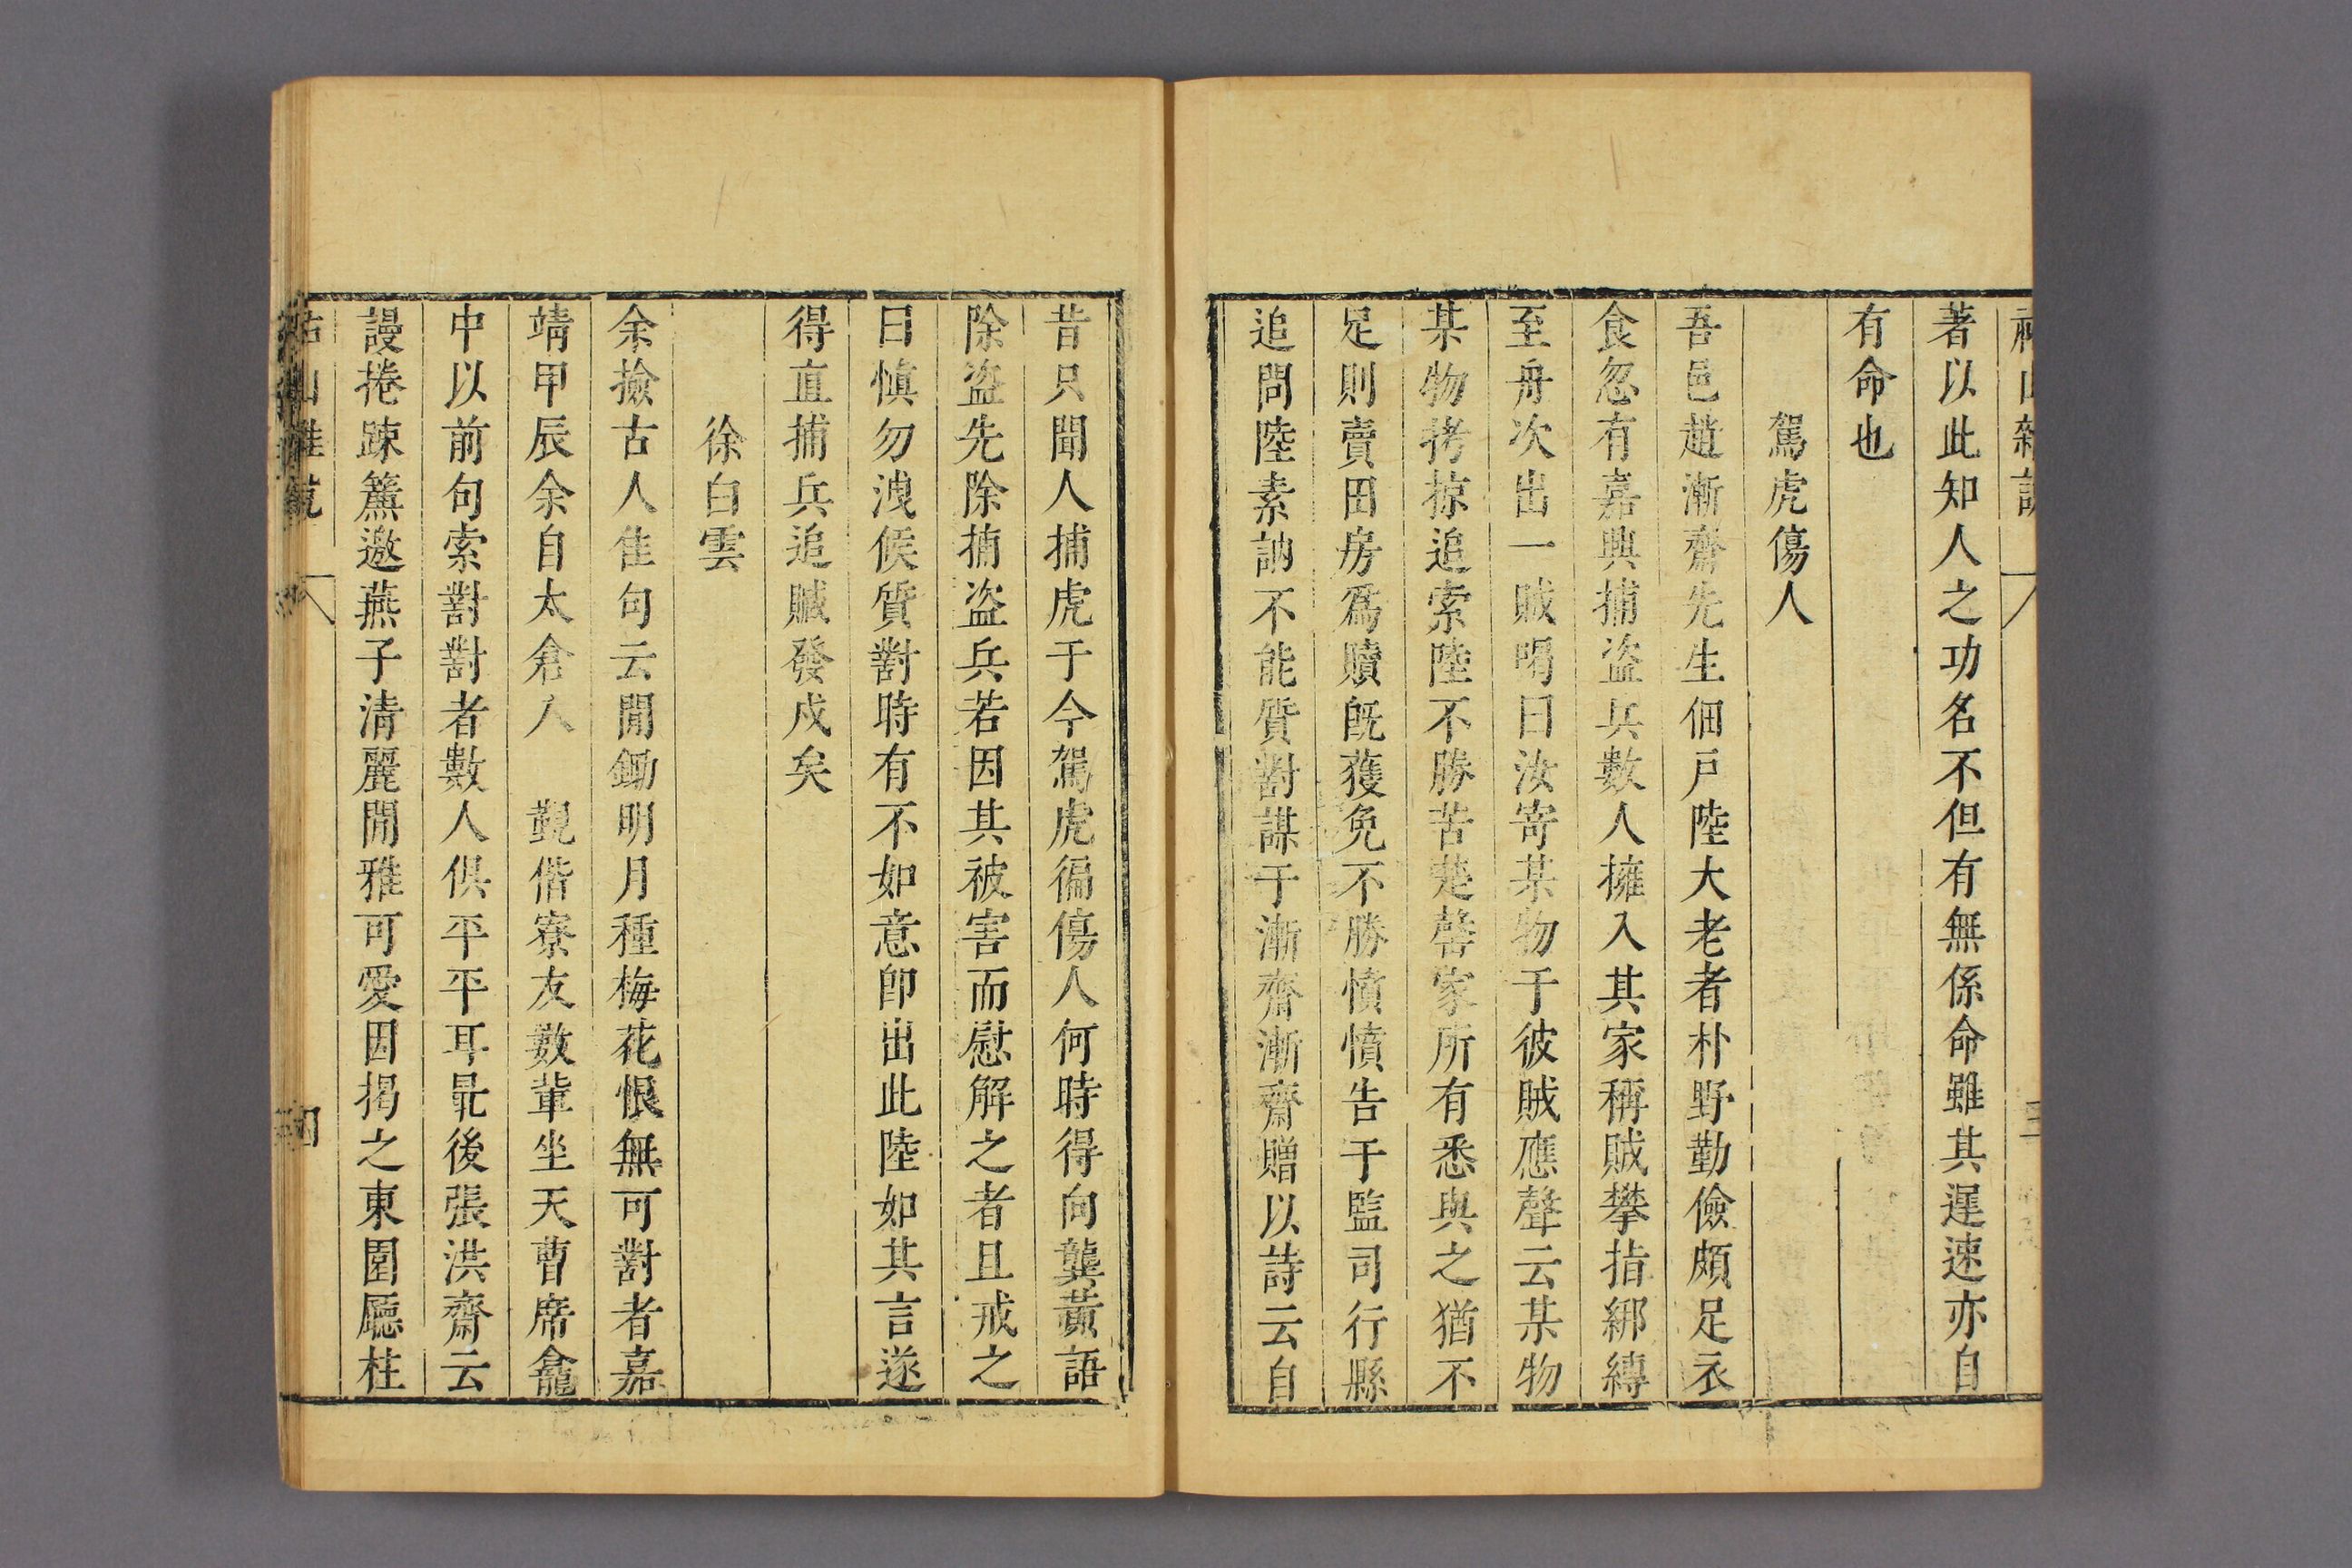 山雜
著以此知人之功名不但有無係命雖其遲速亦自
有命也
駕虎傷人
吾邑趙漸齋先生佃戶陸大老者朴野勤儉頗足衣
食忽有嘉興捕盜兵數人擁入其家稱賊攀指綁縛
至舟次出一賊喝曰汝寄某物于彼賊應聲云某物
某物拷掠追索陸不勝苦楚罄家所有悉與之猶不
足則賣田房爲贖旣獲免不勝憤憤告于監司行縣
追問陸素訥不能質對謀于漸齋漸齋贈以詩云自
昔只聞人捕虎于今駕虎徧傷人何時得向龔黃語
除盜先除捕盜兵若因其被害而慰解之者且戒之
曰愼勿洩候質對時有不如意卽出此陸如其言遂
得直捕兵追贓發戍矣
徐白雲
余撿古人佳句云閒鋤明月種梅花恨無可對者嘉
靖甲辰余自太倉入　覲偕寮友數輩坐天曹席龕
中以前句索對對者數人俱平平耳㝡後張洪齋云
謾捲踈簾邀燕子清麗閒雅可愛因揭之東園廳柱
山雜 四